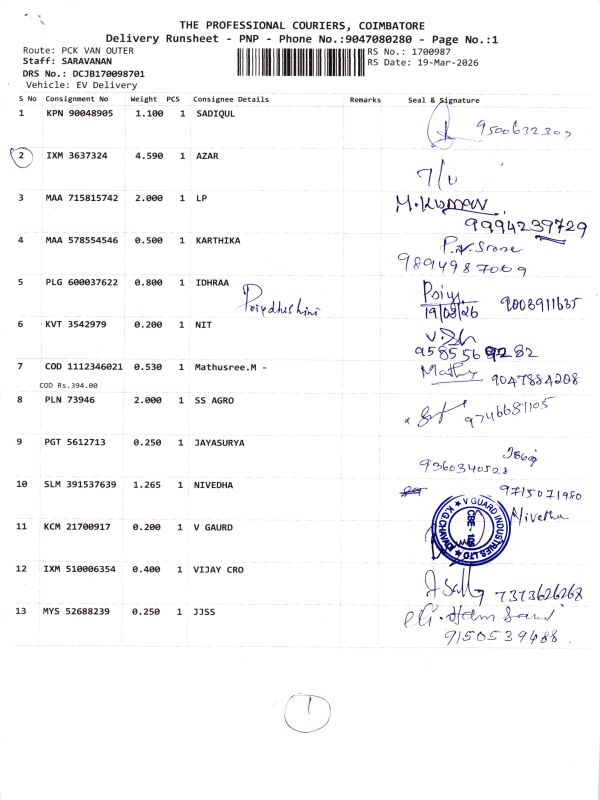 THE PROFESSIONAL COURIERS, COIMBATORE
Delivery Runsheet - PNP - Phone No.:9047080280 - Page No.:1
Route: PCK VAN OUTER
RS No.: 1700987
Staff: SARAVANAN
RS Date: 19-Mar-2026
DRS No.: DCJB170098701
Vehicle: EV Delivery
S No Consignment No Weight PCS Consignee Details Remarks Seal & Signature
1 KPN 90048905 1.100 1 SADIQUL
2 IXM 3637324 4.590 1 AZAR
3 MAA 715815742 2.000 1 LP M.KUMAR
9994239729
4 MAA 578554546 0.500 1 KARTHIKA
9894987009
5 PLG 600037622 0.800 1 IDHRAA Priya 9003911635
Priyadharshini 19/03/26
6 KVT 3542979 0.200 1 NIT
9585569282
7 COD 1112346021 0.530 1 Mathusree.M - 9047884208
COD Rs.394.00
8 PLN 73946 2.000 1 SS AGRO 9746681105
9 PGT 5612713 0.250 1 JAYASURYA
9360340528
10 SLM 391537639 1.265 1 NIVEDHA 9715071980
Nivetha
11 KCM 21700917 0.200 1 V GAURD V GUARD INDUSTRIES LTD
12 IXM 510006354 0.400 1 VIJAY CRO
7373626268
13 MYS 52688239 0.250 1 JJSS
9150539488
1